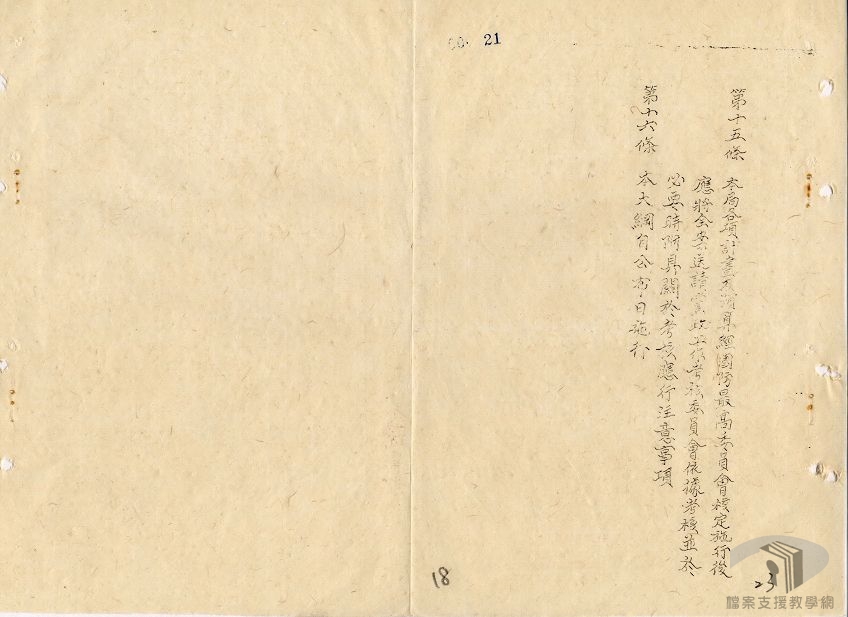 21
第十五條 本局各項計畫及預算經國防最高委員會核定施行後
應將全案送請黨政工作考核委員會依據考核並於
必要時附具關於考核應行注意事項
第十六條 本大綱自公布日施行
18
23
檔案支援教學網